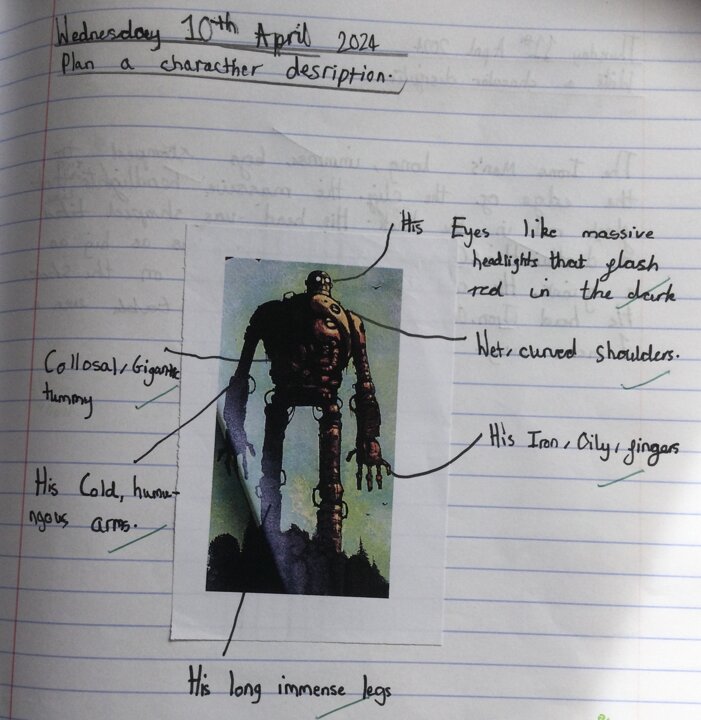 Wednesday 10th April 2024
Plan a characther desription.
His Eyes like massive
headlights that flash
red in the dark
Wet, curved shoulders.
Collosal, Gigantic
tummy
His Iron, Oily, fingers
His Cold, humu-
ngous arms.
His long immense legs